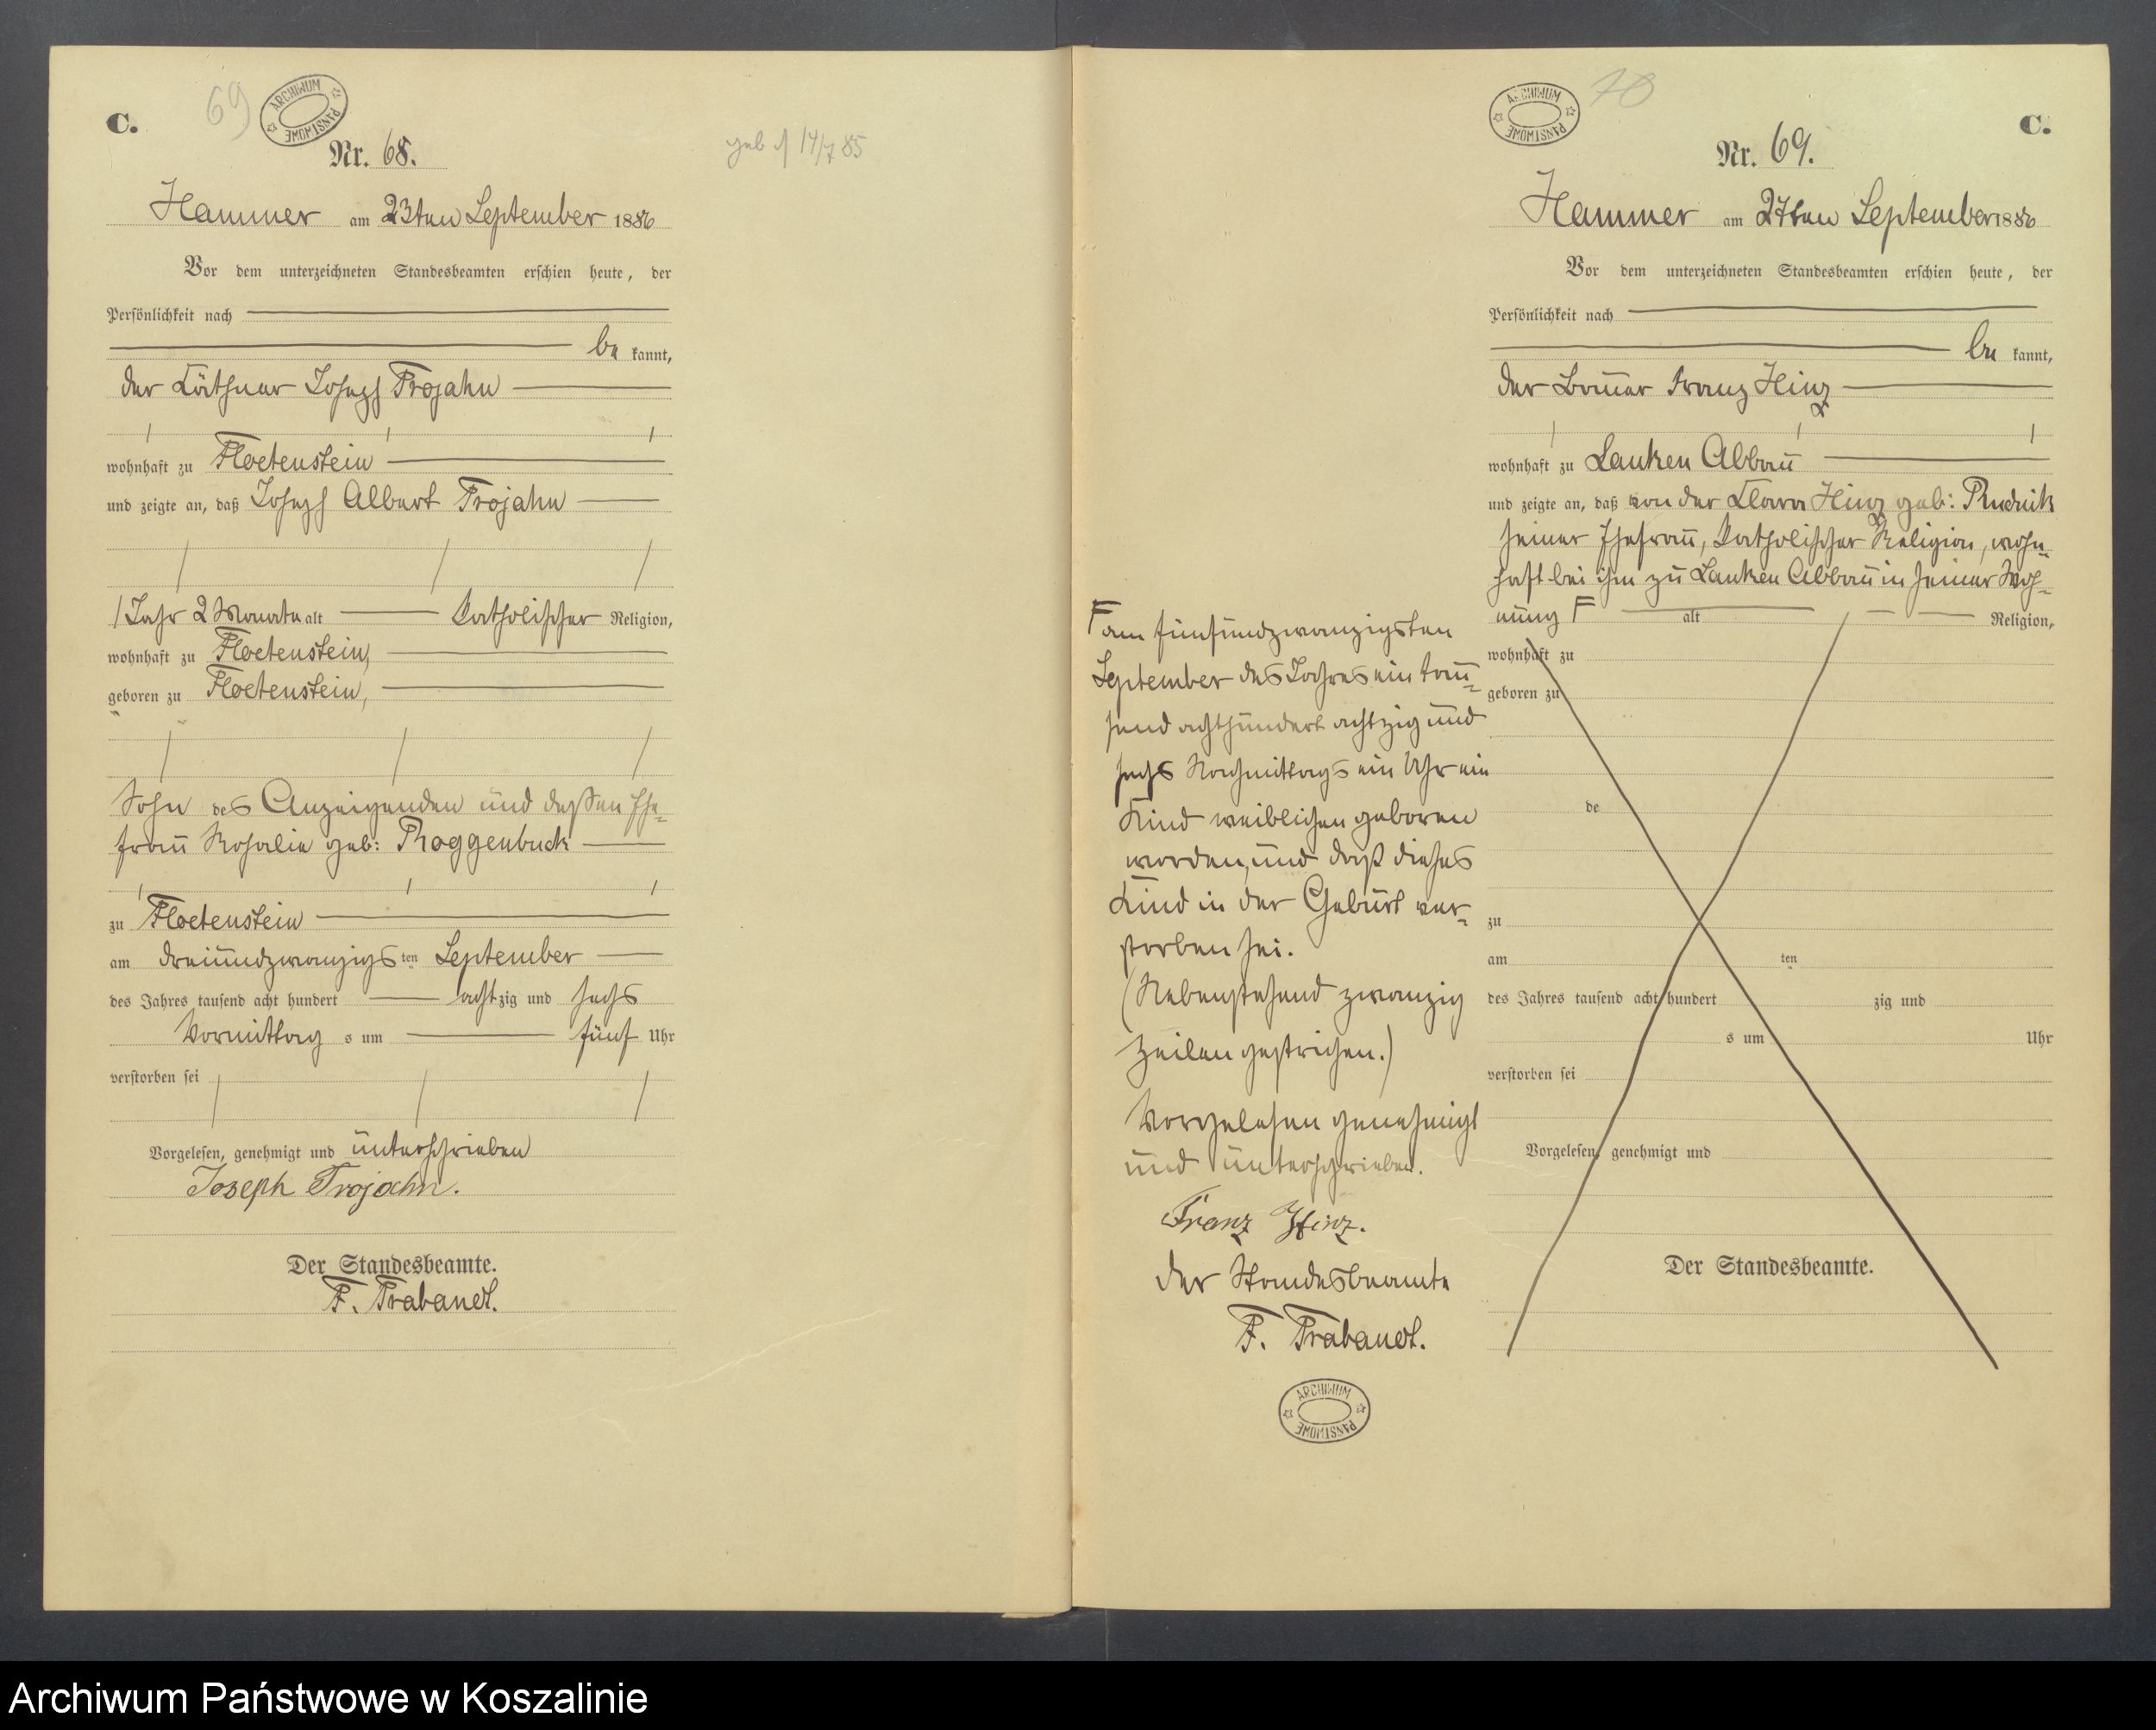 C.
69
ARCHIWUM PAŃSTWOWE
Nr. 68.
geb 14/7 85
Hammer am 23ten September 1886
Vor dem unterzeichneten Standesbeamten erschien heute, der
Persönlichkeit nach
be kannt,
der Käthner Joseph Trojahn
wohnhaft zu Floetenstein
und zeigte an, daß Joseph Albert Trojahn
1 Jahr 2 Monate alt katholischer Religion,
wohnhaft zu Floetenstein,
geboren zu Floetenstein,
Sohn des Anzeigenden und deßen Ehe=
frau Rosalie geb: Roggenbuck
zu Floetenstein
am dreiundzwanzigs ten September
des Jahres tausend acht hundert achtzig und sechs
Vormittag s um fünf Uhr
verstorben sei
Vorgelesen, genehmigt und unterschrieben
Joseph Trojahn.
Der Standesbeamte.
F. Trabandt.
ARCHIWUM PAŃSTWOWE
70
C.
Nr. 69.
Hammer am 27ten September 1886
Vor dem unterzeichneten Standesbeamten erschien heute, der
Persönlichkeit nach
be kannt,
der Bauer Franz Hinz
wohnhaft zu Lanken Abbau
und zeigte an, daß von der Clara Hinz geb: Rudnik
seiner Ehefrau, katholischer Religion, wohn=
haft bei ihm zu Lanken Abbau in seiner Woh=
nung F alt Religion,
wohnhaft zu
geboren zu
de
zu
am ten
des Jahres tausend acht hundert zig und
s um Uhr
verstorben sei
Vorgelesen, genehmigt und
Der Standesbeamte.
F am fünfundzwanzigsten
September des Jahres ein tau=
send achthundert achtzig und
sechs Nachmittags ein Uhr ein
Kind weiblichen geboren
worden, und daß dieses
Kind in der Geburt ver=
storben sei.
(Nebenstehend zwanzig
Zeilen gestrichen.)
Vorgelesen genehmigt
und unterschrieben.
Franz Hinz.
Der Standesbeamte
F. Trabandt.
ARCHIWUM PAŃSTWOWE
Archiwum Państwowe w Koszalinie